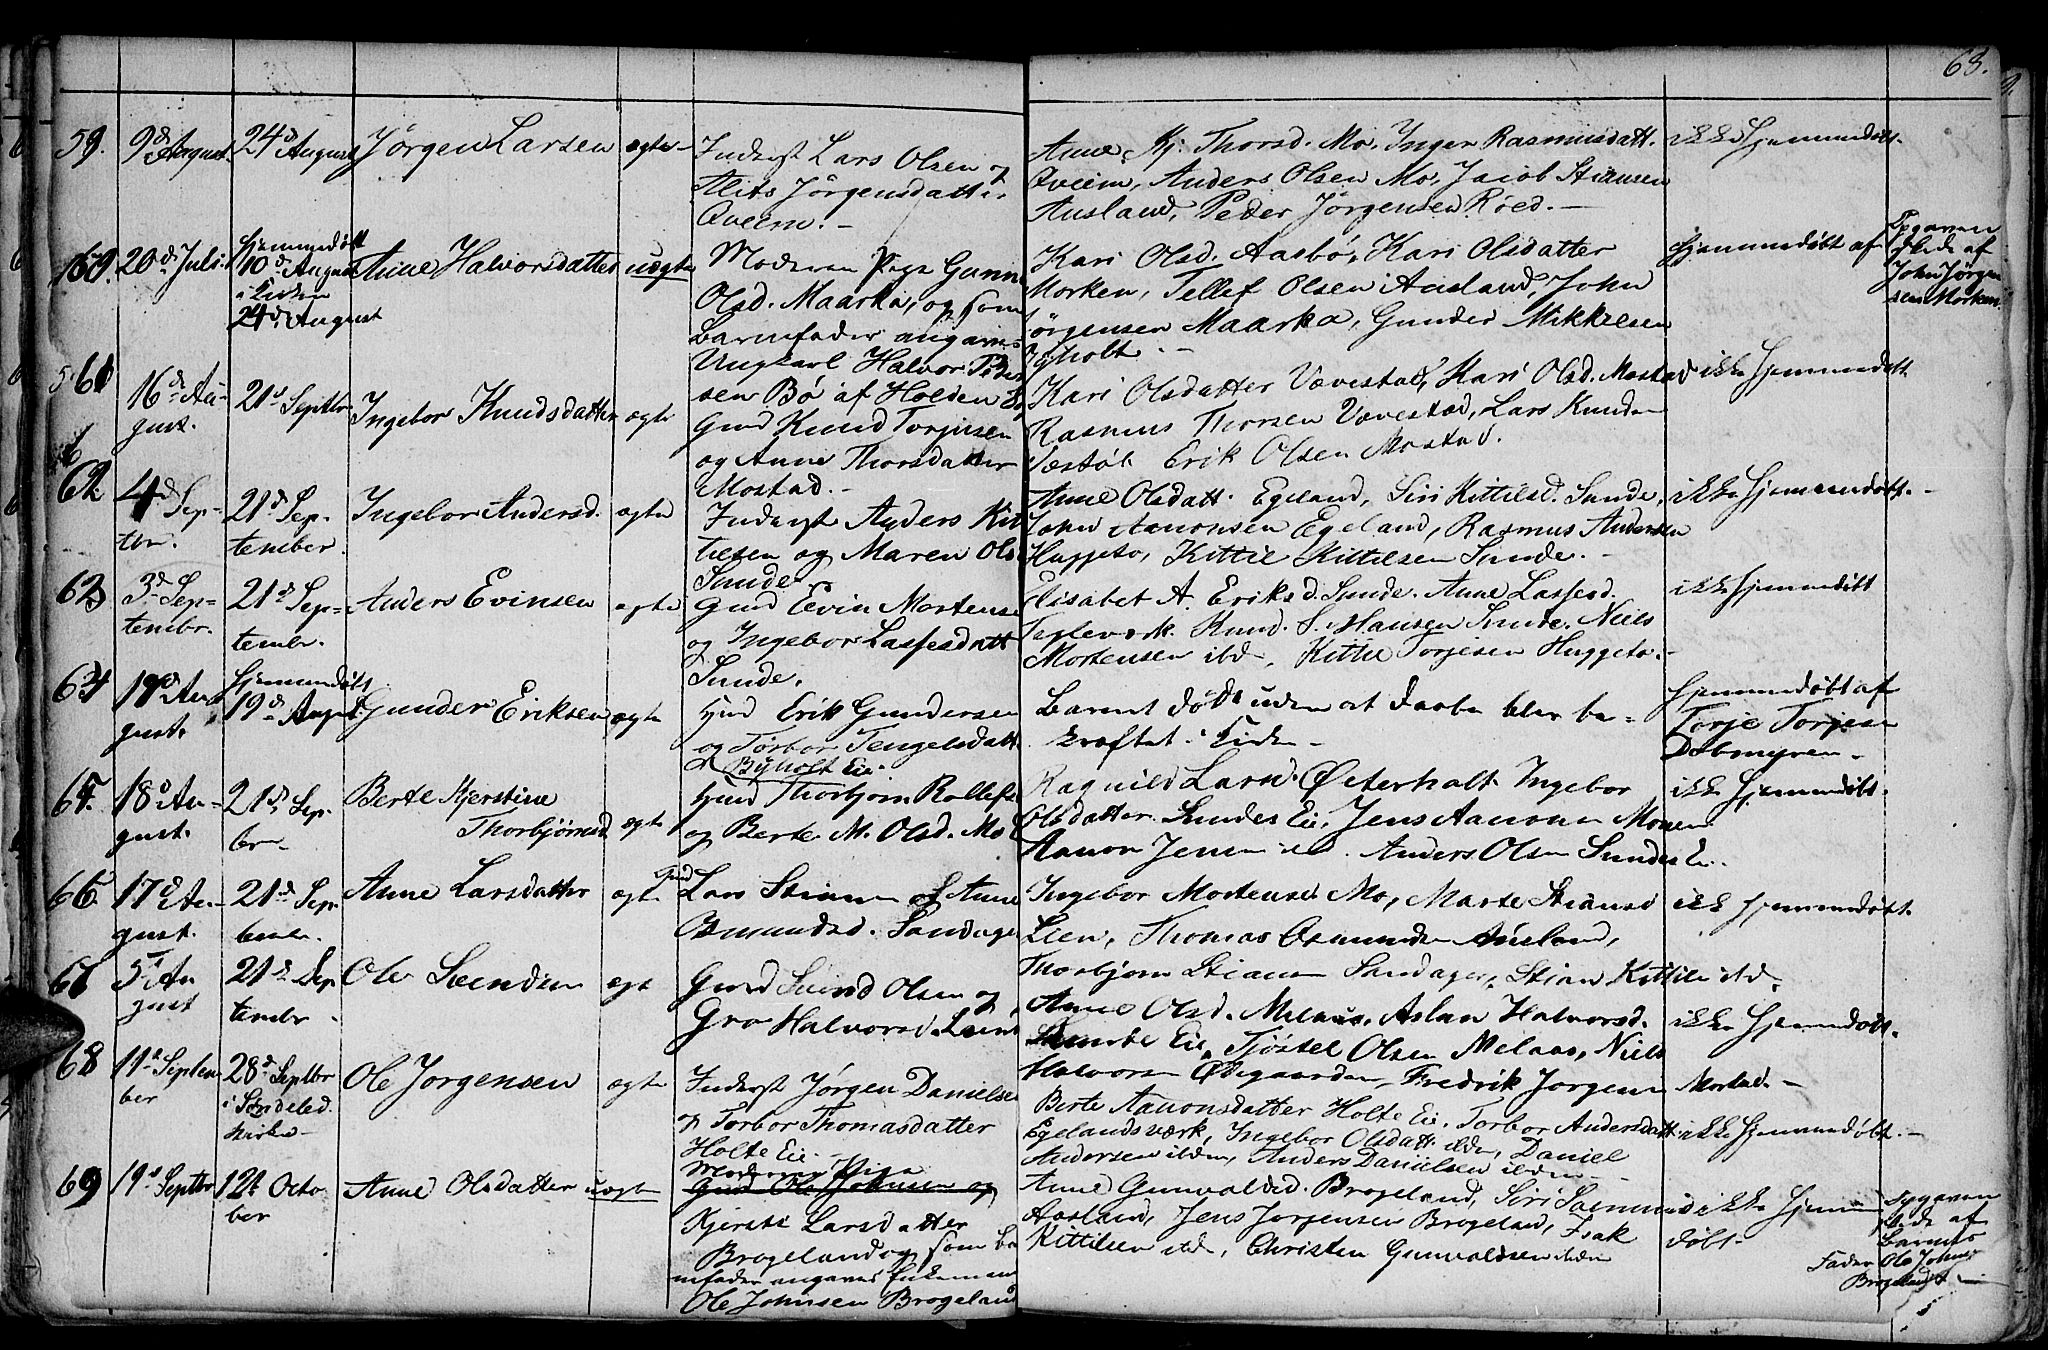 68.
59. 9d August 24d August Jörgen Larsen ægte
Inderst Lars Olsen og
Alits Jörgensdatt
Qveim.
Anne Kj. Thorsd. Mo, Inger Rasmusdatt.
Qveim, Anders Olsen Mo, Jacob Stiansen
Ausland, Peder Jörgensen Röed.
ikke Hjemmedøbt.
60. 20d Juli Hjemmedøbt
10d August
i Kirken
24d August
Anne Halvorsdatter uægte
Moderen Pige Gunn
Olsd. Maarka, og som
Barnefader angaves
Ungkarl Halvor
sen Bø af Holden
Kari Olsd. Aasbø, Kari Olsdatter
Morken, Tellef Olsen Ausland, John
Jørgensen Maarka, Gunder Mikkelsen
Hjemmedøbt af
Opgaven
skede af
John Jørgen
sen Morken
61 16d Au-
gust.
21d Septbr Ingebor Knudsdatter ægte
Gmd Knud Torjusen
og Anne Thorsdatter
Mostad.
Kari Olsdatter Vævestad, Kari Olsd. Mostad
Rasmus Thorsen Vævestad, Lars Knuds
Erik Olsen Mostad.
ikke Hjemmedøbt
62 4d Sep-
tbr.
21d Sep-
tember.
Ingebor Andersd. ægte
Inderst Anders Kit
tilsen og Maren Ols
Sunde
Anne Olsdatt. Egeland, Siri Kittilsd. Sunde,
John Aanonsen Egeland, Rasmus Andersen
Huggeto, Kittil Kittilsen Sunde.
ikke Hjemmedøbt.
63 3d Sep-
tembr.
21d Sep-
tembr.
Anders Evinsen ægte
Gmd Eevin Mortense
og Ingebor Lassesdatt
Sunde.
Elisabet A. Eriksd. Sunde, Anne Lassesd.
Teglværk. Knud S. Hansen Sunde, Niels
Mortensen ibd, Kittil Torjesen Huggeto.
ikke Hjemmedøbt
64 19d Au-
gust.
Hjemmedøbt
19d August Gunder Eriksen ægte
Gmd Erik Gundersen
og Torbor Tengelsdatt
Byholt Eie.
Barnet døde uden at Daaben blev be-
kræftet i Kirken
Hjemmedøbt af
Torje Torjesen
Dobmyren
65. 18d Au-
gust.
21d Sep
br
Berte Kjerstine
Thorbjörnsd ægte
Gmd Thorbjørn Rollefs
og Berte M. Olsd. Mo
Ragnild Larsd. Østerholt Ingebor
Olsdatter Sundes Eie, Jens Aanonsen Moen
Aanon Jensen ibd. Anders Olsen Sundes E.
ikke Hjemmedøbt.
66. 17d Au-
gust.
21d Sep
tembr.
Anne Larsdatter ægte
Gmd
Lars Stiansen & Anne
Osmundsd. Sandager
Ingebor Mortensd. Mo, Marte Stiansd
Lien, Thomas Osmundsen Ausland,
Thorbjørn Stiansen Sandager, Stian Kittilsen ibd.
ikke Hjemmedøbt.
67 5d Au
gust
21d Sep
tembr
Ole Sveindsen ægte
Gmd Svind Olsen og
Gro Halvorsd.
Anne Olsd. Melaas, Aslau Halvorsd.
Eie, Tjöstel Olsen Melaas, Niels
Halvorsen Ødegaarden, Fredrik Jorgensen Mostad.
ikke Hjemmedøbt.
68 11d Septem
ber
28d Septbr
i Søndeled
Kirke
Ole Jorgensen ægte
Inderst Jørgen Danielse
og Torbor Thomasdatter
Holte Eie.
Berte Aanonsdatter Holte Eie, Torbor Andersdatt
Egelandsværk, Ingebor Olsdatt. ibdm, Daniel
Andersen ibdm, Anders Danielsen ibdm
ikke Hjemmedøbt.
69 19d Septbr 12t Octo
ber
Anne Olsdatter uægte
Moderen Pige
Gmd Ole Johnsen og
Kjersti Larsdatter
Brogeland og som Ba
nefader angaves Enkeman
Ole Johnsen Brogeland
Anne Gunvaldsd. Brogeland, Siri Saamund
Aasland, Jens Jorgensen Brogeland, Isak
Kittilsen ibd, Christen Gunvaldsen ibdm
ikke Hjemme
døbt
Opgaven
skede af
Barnets
Fader Ole Johns
Brogeland